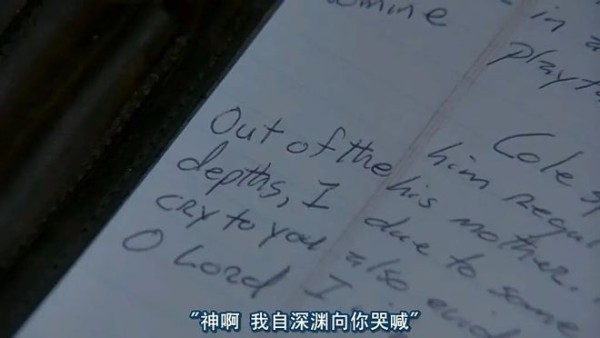 omine
in a
Out of the
depths, I
cry to you
O Lord
Cole
him
his mother.
due to some
also
I
"神啊 我自深渊向你哭喊"